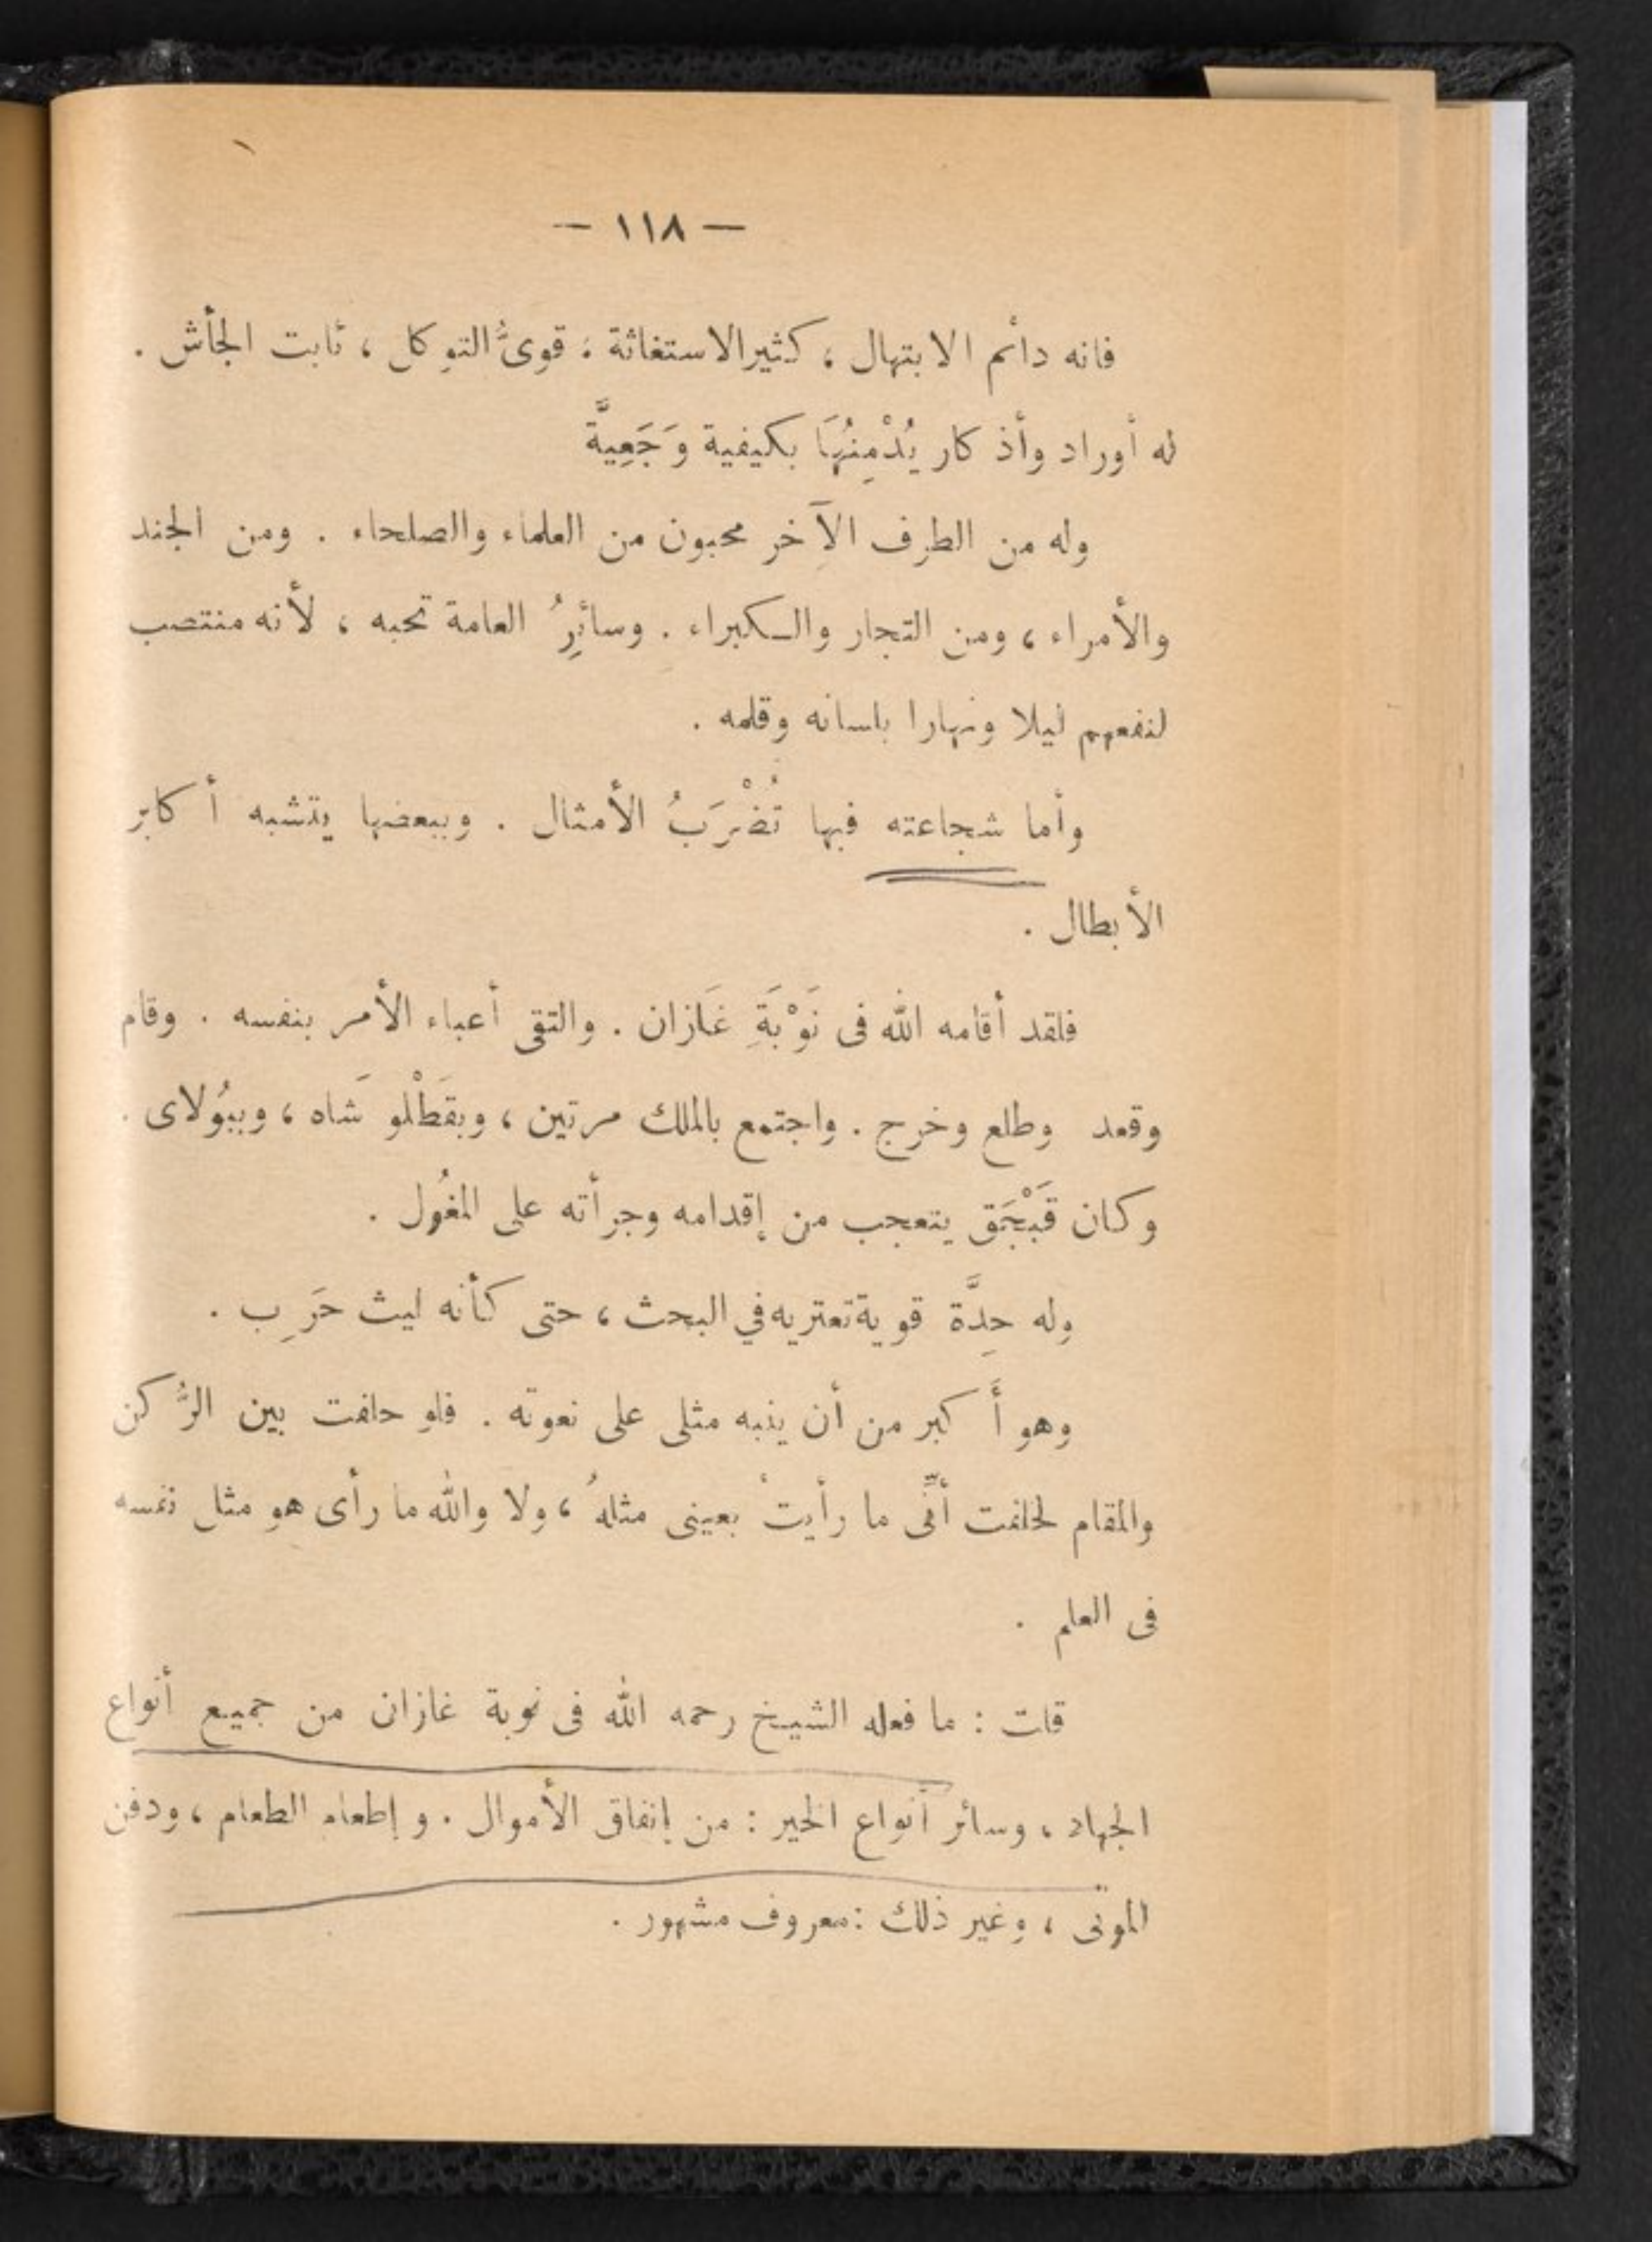 — ١١٨ —
فانه دائم الابتهال ، كثير الاستغاثة ، قوىُّ التوكل ، ثابت الجأش .
له أوراد وأذكار يُدْمِنُهَا بكيفية وَجَمعِيَّة
وله من الطرف الآخر محبون من العلماء والصلحاء . ومن الجند
والأمراء ، ومن التجار والكبراء . وسائِرُ العامة تحبه ، لأنه منتصب
لنفعهم ليلا ونهارا بلسانه وقلمه .
وأما شجاعته فبها تُضْرَبُ الأمثال . وببعضها يتشبه أكابر
الأبطال .
فلقد أقامه الله فى نَوْبَةِ غَازان . والتقى أعباء الأمر بنفسه . وقام
وقعد وطلع وخرج . واجتمع بالملك مرتين ، وبقَطْلو شَاه ، وببُولاى .
وكان قَبْجَق يتعجب من إقدامه وجرأته على المغُول .
وله حِدَّة قوية تعتريه في البحث ، حتى كأنه ليث حَرِب .
وهو أَكبر من أن ينبه مثلى على نعوته . فلو حلفت بين الرُّكن
والمقام لحلفت أنِّى ما رأيتُ بعينى مثلهُ ، ولا والله ما رأى هو مثل نفسه
فى العلم .
قلت : ما فعله الشيخ رحمه الله فى نوبة غازان من جميع أنواع
الجهاد ، وسائر أنواع الخير : من إنفاق الأموال . و إطعام الطعام ، ودفن
الموتى ، وغير ذلك : معروف مشهور .